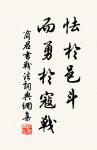 怯於邑斗
而勇於寇戰
商君書戰法詞典網集